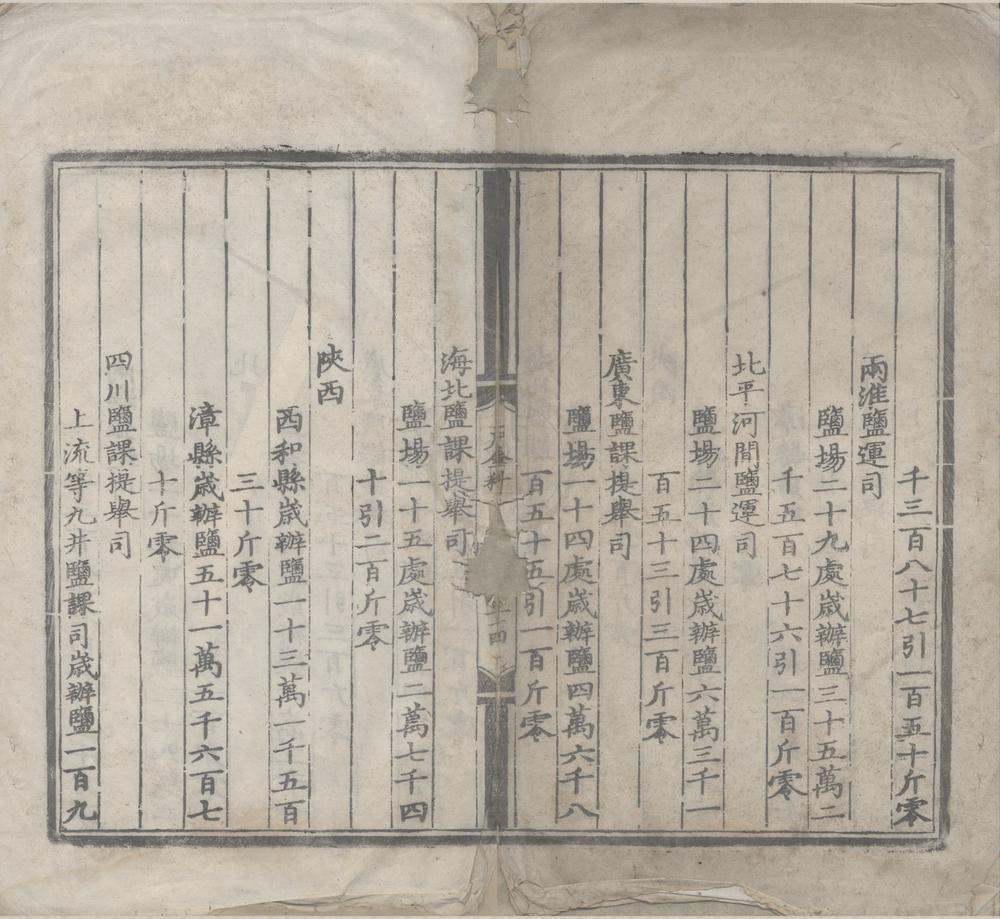 千三百八十七引一百五十斤零
兩淮鹽運司
鹽場二十九處歲辦鹽三十五萬二
千五百七十六引一百斤零
北平河間鹽運司
鹽場二十四處歲辦鹽六萬三千一
百五十三引三百斤零
廣東鹽課提舉司
鹽場一十四處歲辦鹽四萬六千八
百五十五引一百斤零
戶金科
四
海北鹽課提舉司
鹽場一十五處歲辦鹽二萬七千四
十引二百斤零
陝西
西和縣歲辦鹽一十三萬一千五百
三十斤零
漳縣歲辦鹽五十一萬五千六百七
十斤零
四川鹽課提舉司
上流等九井鹽課司歲辦鹽一百九